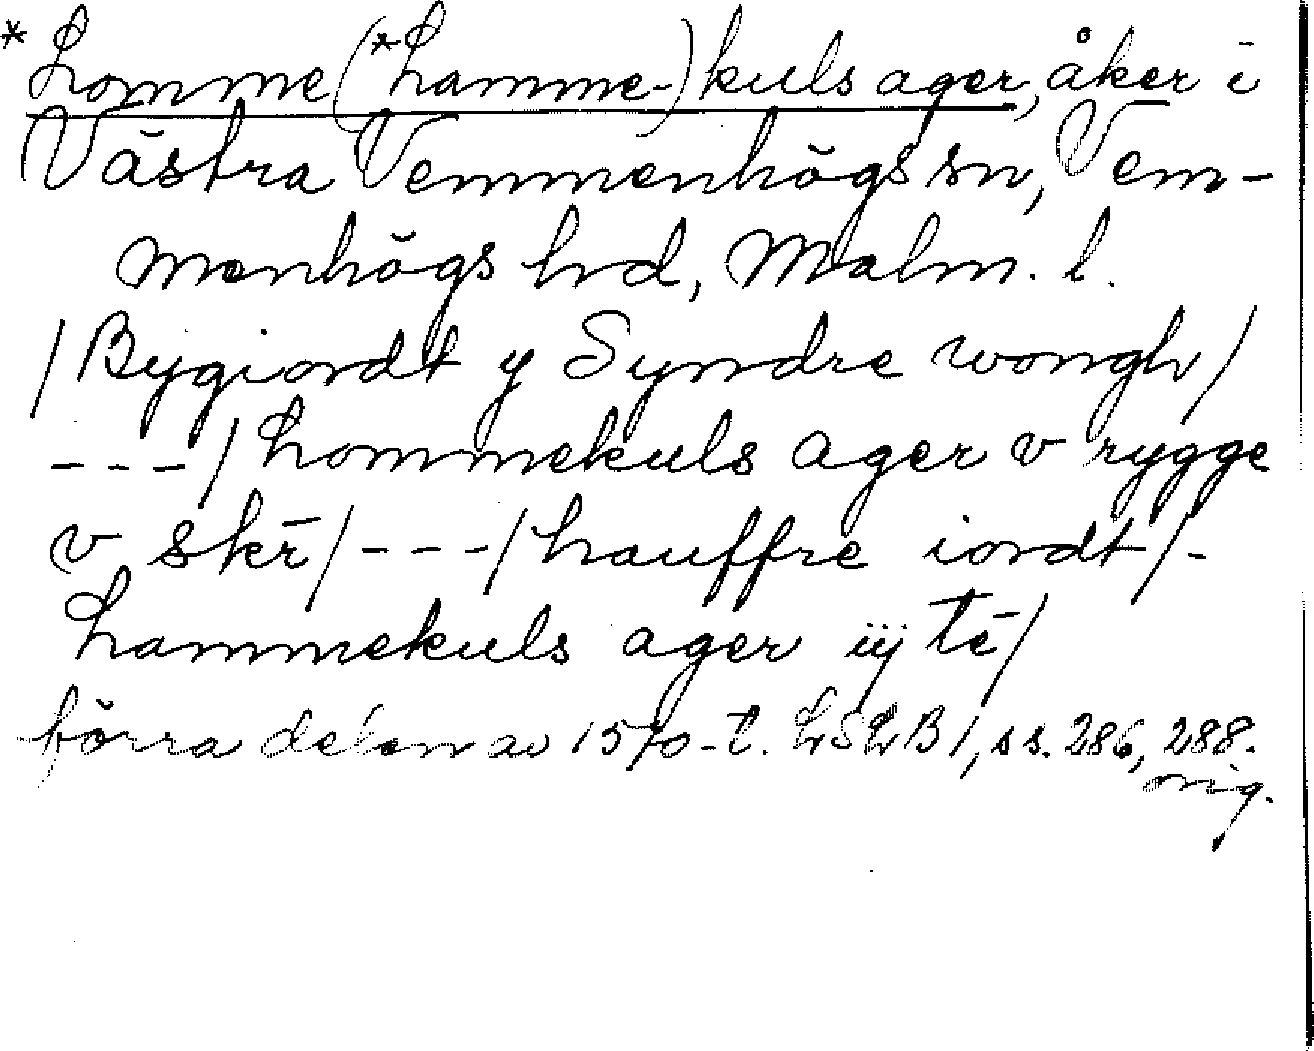 * Homme(*Hamme-)kuls ager, åker i
Västra Vemmenhögs sn, Vem-
menhögs hd, Malm. l.
/Bygiordt y Syndre wongh/
---/Hommekuls ager v rygge
v skr̄/---/hauffre iordt/-
Hammekuls ager iij tē᷎/
förra delen av 1570-t. LSLB 1, ss. 286, 288.
orig.